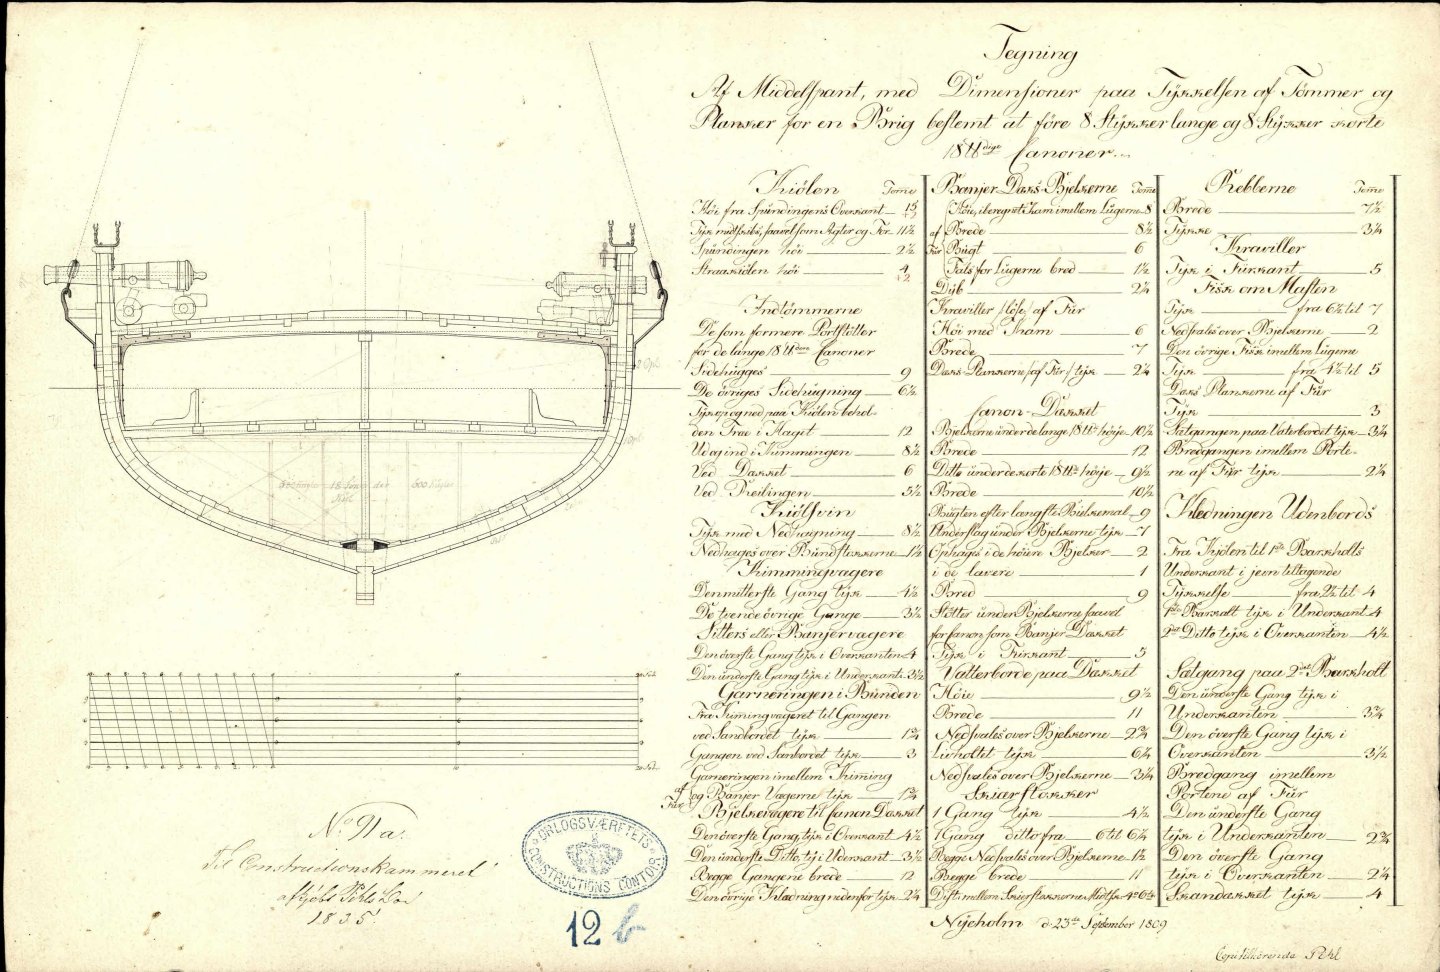 Tegning
Af Middelspant, med Dimensioner paa Tykkelsen af Tømmer og
Planker for en Brig bestemt at føre 8 Stykker lange og 8 Stykker korte
18 ℔dige Canoner
Kiölen Tomme
Höi fra Spündingens Overkant 15
Tyk midtskibs, saavelsom Agter og For 11½
Spündingen höi 2½
Straakiölen höi 4
Indtömmerne
De som formere Portstötter
for de lange 18 ℔dere Canoner
Sidehugges 9
De övriges Sidehugning 6½
Tyk op og ned paa Kiölen behol-
den Træ i Flaget 12
Ud og ind i Kimmingen 8½
Ved Dækket 6
Ved Reilingen 5½
Kiölsvin
Tyk med Nedhugning 8½
Nedhuges over Bundstokkerne 1½
Kimmingvægere
Den mitterste Gang tyk 4½
De tvende övrige Gange 3½
Sitters eller Banjer vægere
Den överste Gang tyk i Overkanten 4
Den ünderste Gang tyk i Underkant 3½
Garneringen i Bunden
Fra Kimingvægeret til Gangen
ved Sandbordet tyk 1¾
Gangen ved Sanbordet tyk 3
Garneringen imellem Kiming
af Für og Banjer Vægerne tyk 1¾
Bjelkevægere til Canon Dækket
Den överste Gang, tyk i Overkant 4½
Den ünderste Ditto, tyk i Uderkant 3½
Begge Gangene brede 12
Den övrige Klædning nedenfor tyk 2¼
Banjer Dæks-Bjelkerne Tomme
Höie, iberegnet Kam imellem Lügerne 8
af Für
Brede 8½
Bugt 6
Fals for Lügerne bred 1½
Dyb 2¼
Kraviller löse af Für
Höi med Kam 6
Brede 7
Dæks Plankerne af Für tyk 2¼
Canon-Dækket
Bjelkerne ünder de lange 18 ℔ höje 10½
Brede 12
Ditto ünder de korte 18 ℔ höje 9½
Brede 10½
Bügten efter længste Bjelkemal 9
Underslag ünder Bjelkerne tyk 7
Ophages i de höiere Bjelker 2
i de lavere 1
Bred 9
Stötter ünder Bjelkerne saavel
for Canon som Banjer Dækket
Tyk i Firkant 5
Vatterborde paa Dækket
Höie 9½
Brede 11
Nedsvales over Bjelkerne 2¾
Livholtet tyk 6¼
Nedsvales over Bjelkerne 3¼
Skiærstokker
1 Gang tyk 4½
1 Gang ditto fra 6 til 6¼
Begge Nedsvales over Bjelkerne 1½
Begge brede 11
Ribberne Tomme
Brede 7½
Tykke 3¼
Kraviller
Tyk i Fürkant 5
Fisk om Masten
Tyk fra 6½ til 7
Nedsvales over Bjelkerne 2
Den övrige Fisk imellem Lügerne
Tyk fra 4½ til 5
Dæks Plankerne af Für
Tyk 3
Sætgangen paa Vaterbordet tyk 3¼
Bredgangen imellem Porte-
ne af Für tyk 2¼
Klædningen Udenbords
Fra Kjölen til 1ste Barkholts
Underkant i jevn tiltagende
Tykkelse fra 2½ til 4
1ste Barkalt tyk i Underkant 4
2det Ditto tyk i Overkanten 4½
Sætgang paa 2det Barkholt
Den ünderste Gang tyk i
Underkanten 3¾
Den överste Gang tyk i
Overkanten 3½
Bredgang imellem
Portene af Für
Den ünderste Gang
tyk i Underkanten 2¾
Den överste Gang
tyk i Overkanten 2¼
Skandækket tyk 4
Nyeholm d. 23de September 1809
No 91 a.
Til Constructionskammeret
1835
ORLOGSVÆRFTETS
CONSTRUCTIONS CONTOIR
12 b